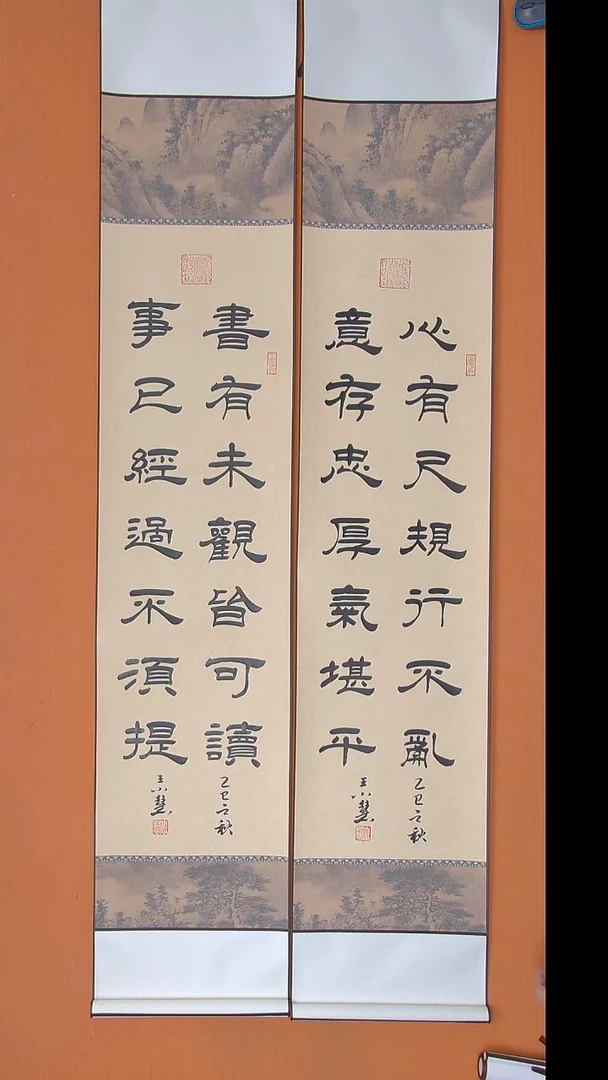 心有尺規行不亂
意存忠厚氣堪平
乙巳之秋
王小慧
書有未觀皆可讀
事已經過不須提
乙巳之秋
王小慧